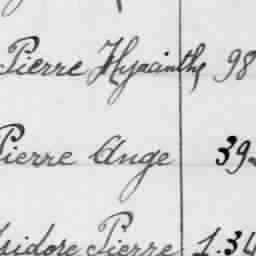 Pierre Hyacinthe 98
Pierre Ange 39
Isidore Pierre 1.34